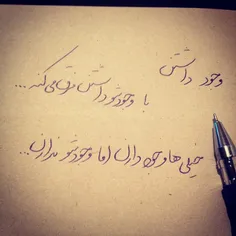 وجود داشتن
با وجودشو داشتن فرق می کنه ...
خیلی ها وجود دارن اما وجودشو ندارن ...